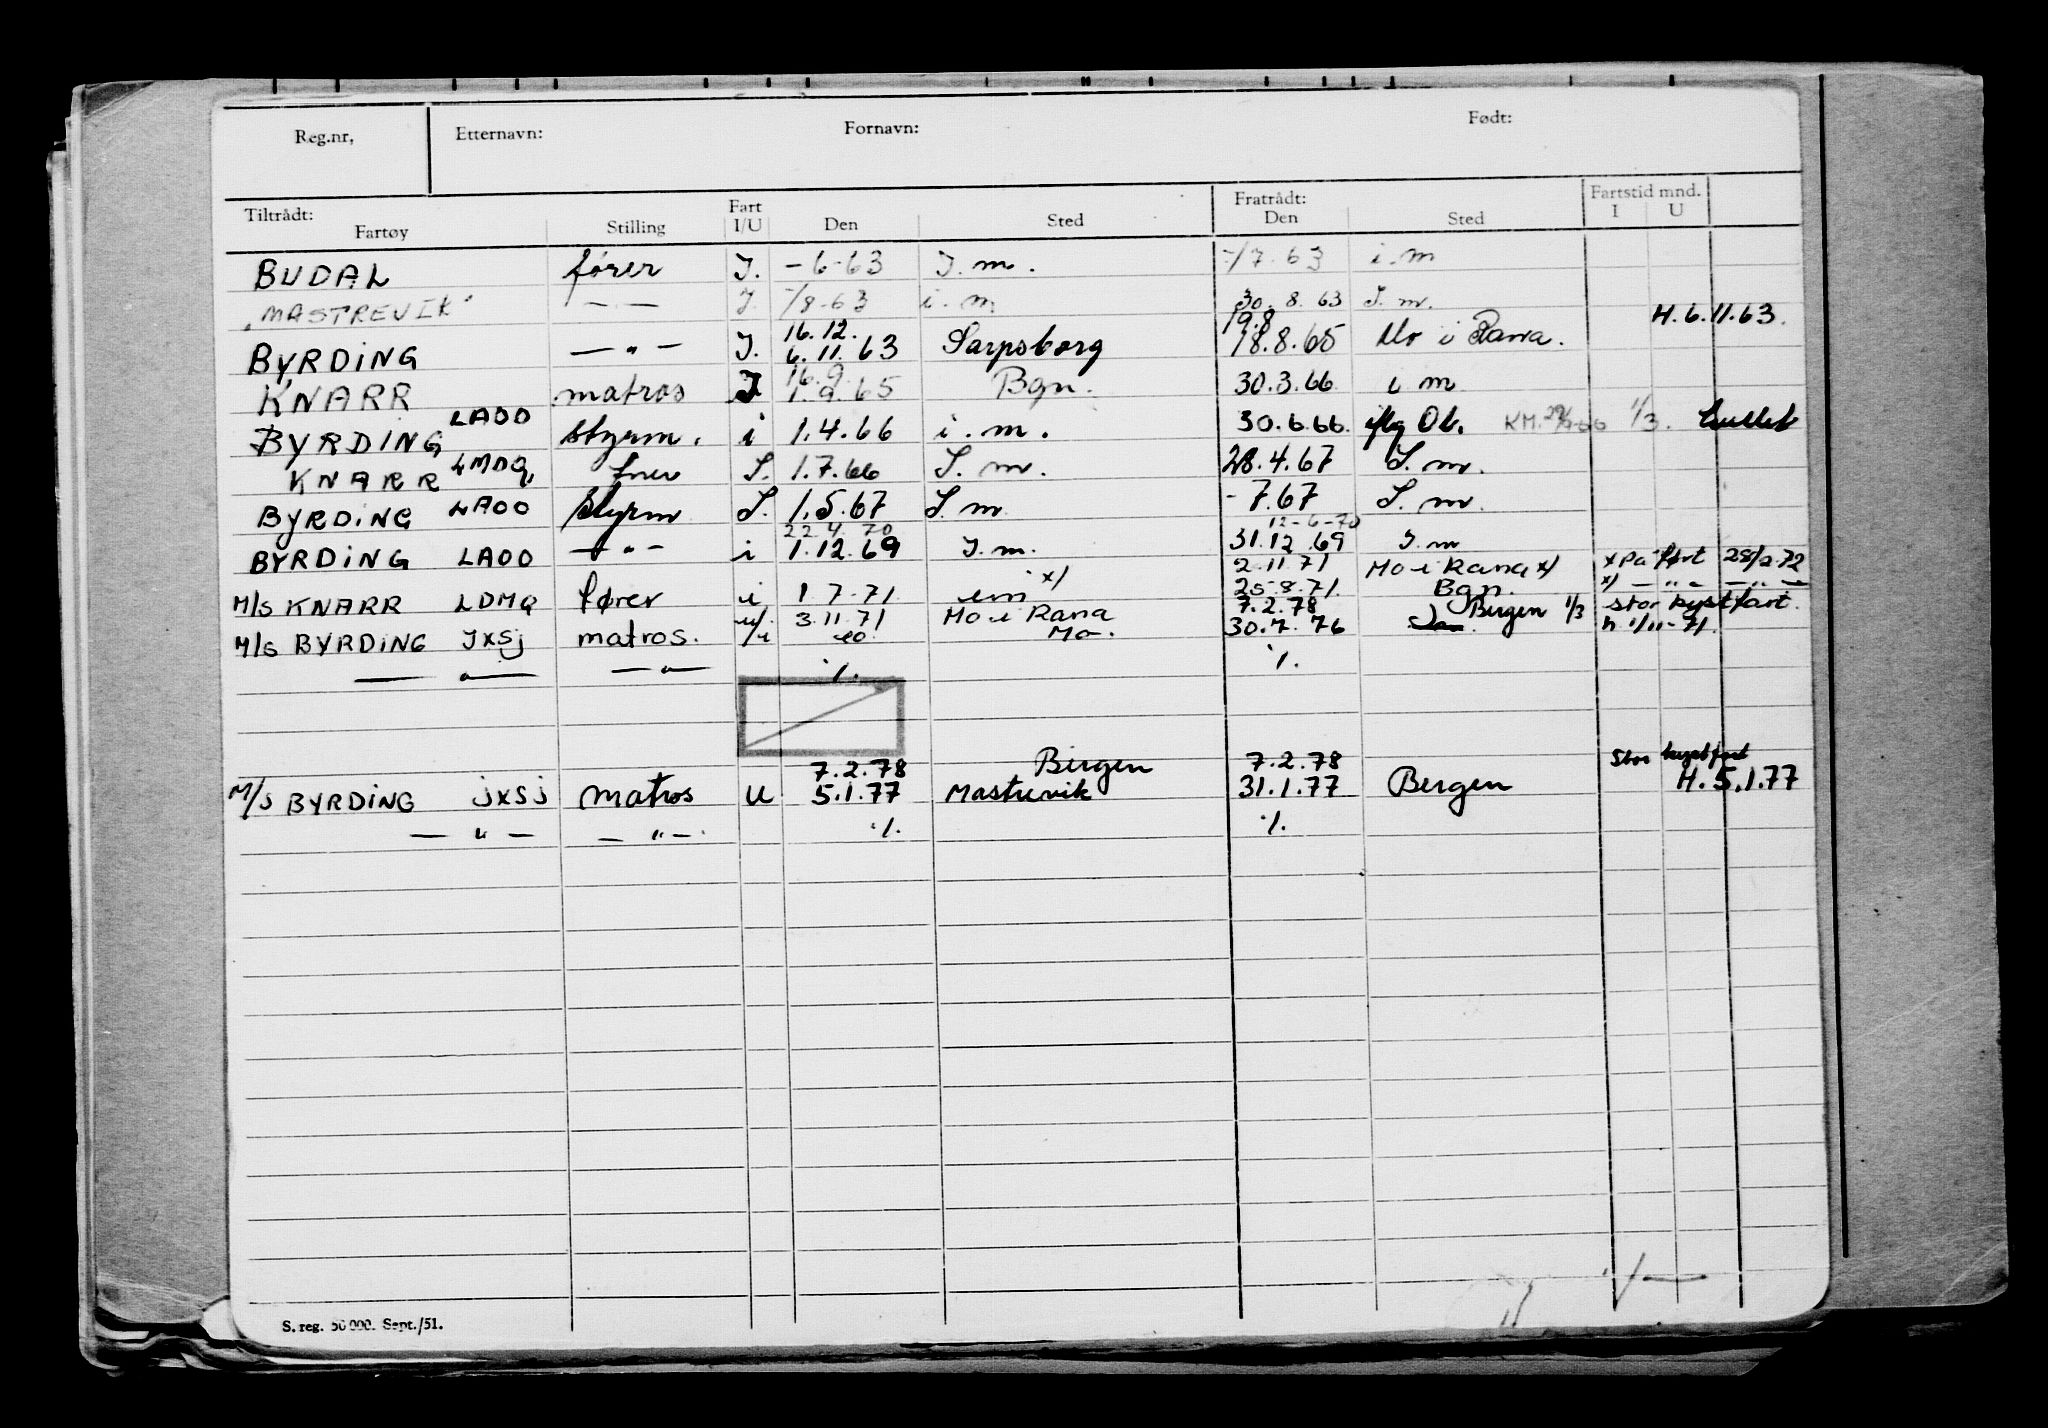 Reg.nr, Etternavn: Fornavn: Født:
Tiltrådt: Fratrådt: Fartstid mnd.
Fartøy Stilling Fart I/U Den Sted Den Sted I U
BUDAL fører I. -6-63 I.m. -/7.63 i.m
"MASTREVIK" — — I. -/8-63 i.m 30.8.63 I.m.
16.12. 19.8 H.6.11.63.
BYRDING — " — I. 6.11.63 Sarpsborg 18.8.65 Mo i Rana.
16.9.
KNARR matros I 1.9.65 Bgn. 30.3.66 i m
BYRDING LAOO styrm. i 1.4.66 i.m. 30.6.66. iflg Ob. KM. 1/3. bullet
KNARR LMDQ, fører I. 1.7.66 I.m. 28.4.67 I.m.
BYRDING LAOO styrm I. 1.5.67 I.m - 7.67 I.m.
22.4.70 12-6-70
BYRDING LAOO — " — i 1.12.69 I.m. 31.12.69 I.m
2.11.71 Mo i Rana x/ x På fart 28/2.72
M/S KNARR LDMQ fører i 1.7.71 im x/ 25.8.71. Bgn. x/ — " — — " —
3.11.71 Mo i Rana 7.2.78 Bergen 1/3 stor kystfart.
M/S BYRDING JXSJ matros. /u 30.7.76 Mo. h 1/11-71.
— " — — " — ./. ./.
7.2.78 Bergen 7.2.78 Stor kystfart
M/S BYRDING JXSJ matros U 5.1.77 Mastrevik 31.1.77 Bergen H.5.1.77
— " — — " — . ./. ./.
S. reg. 50 000. Sept./51.